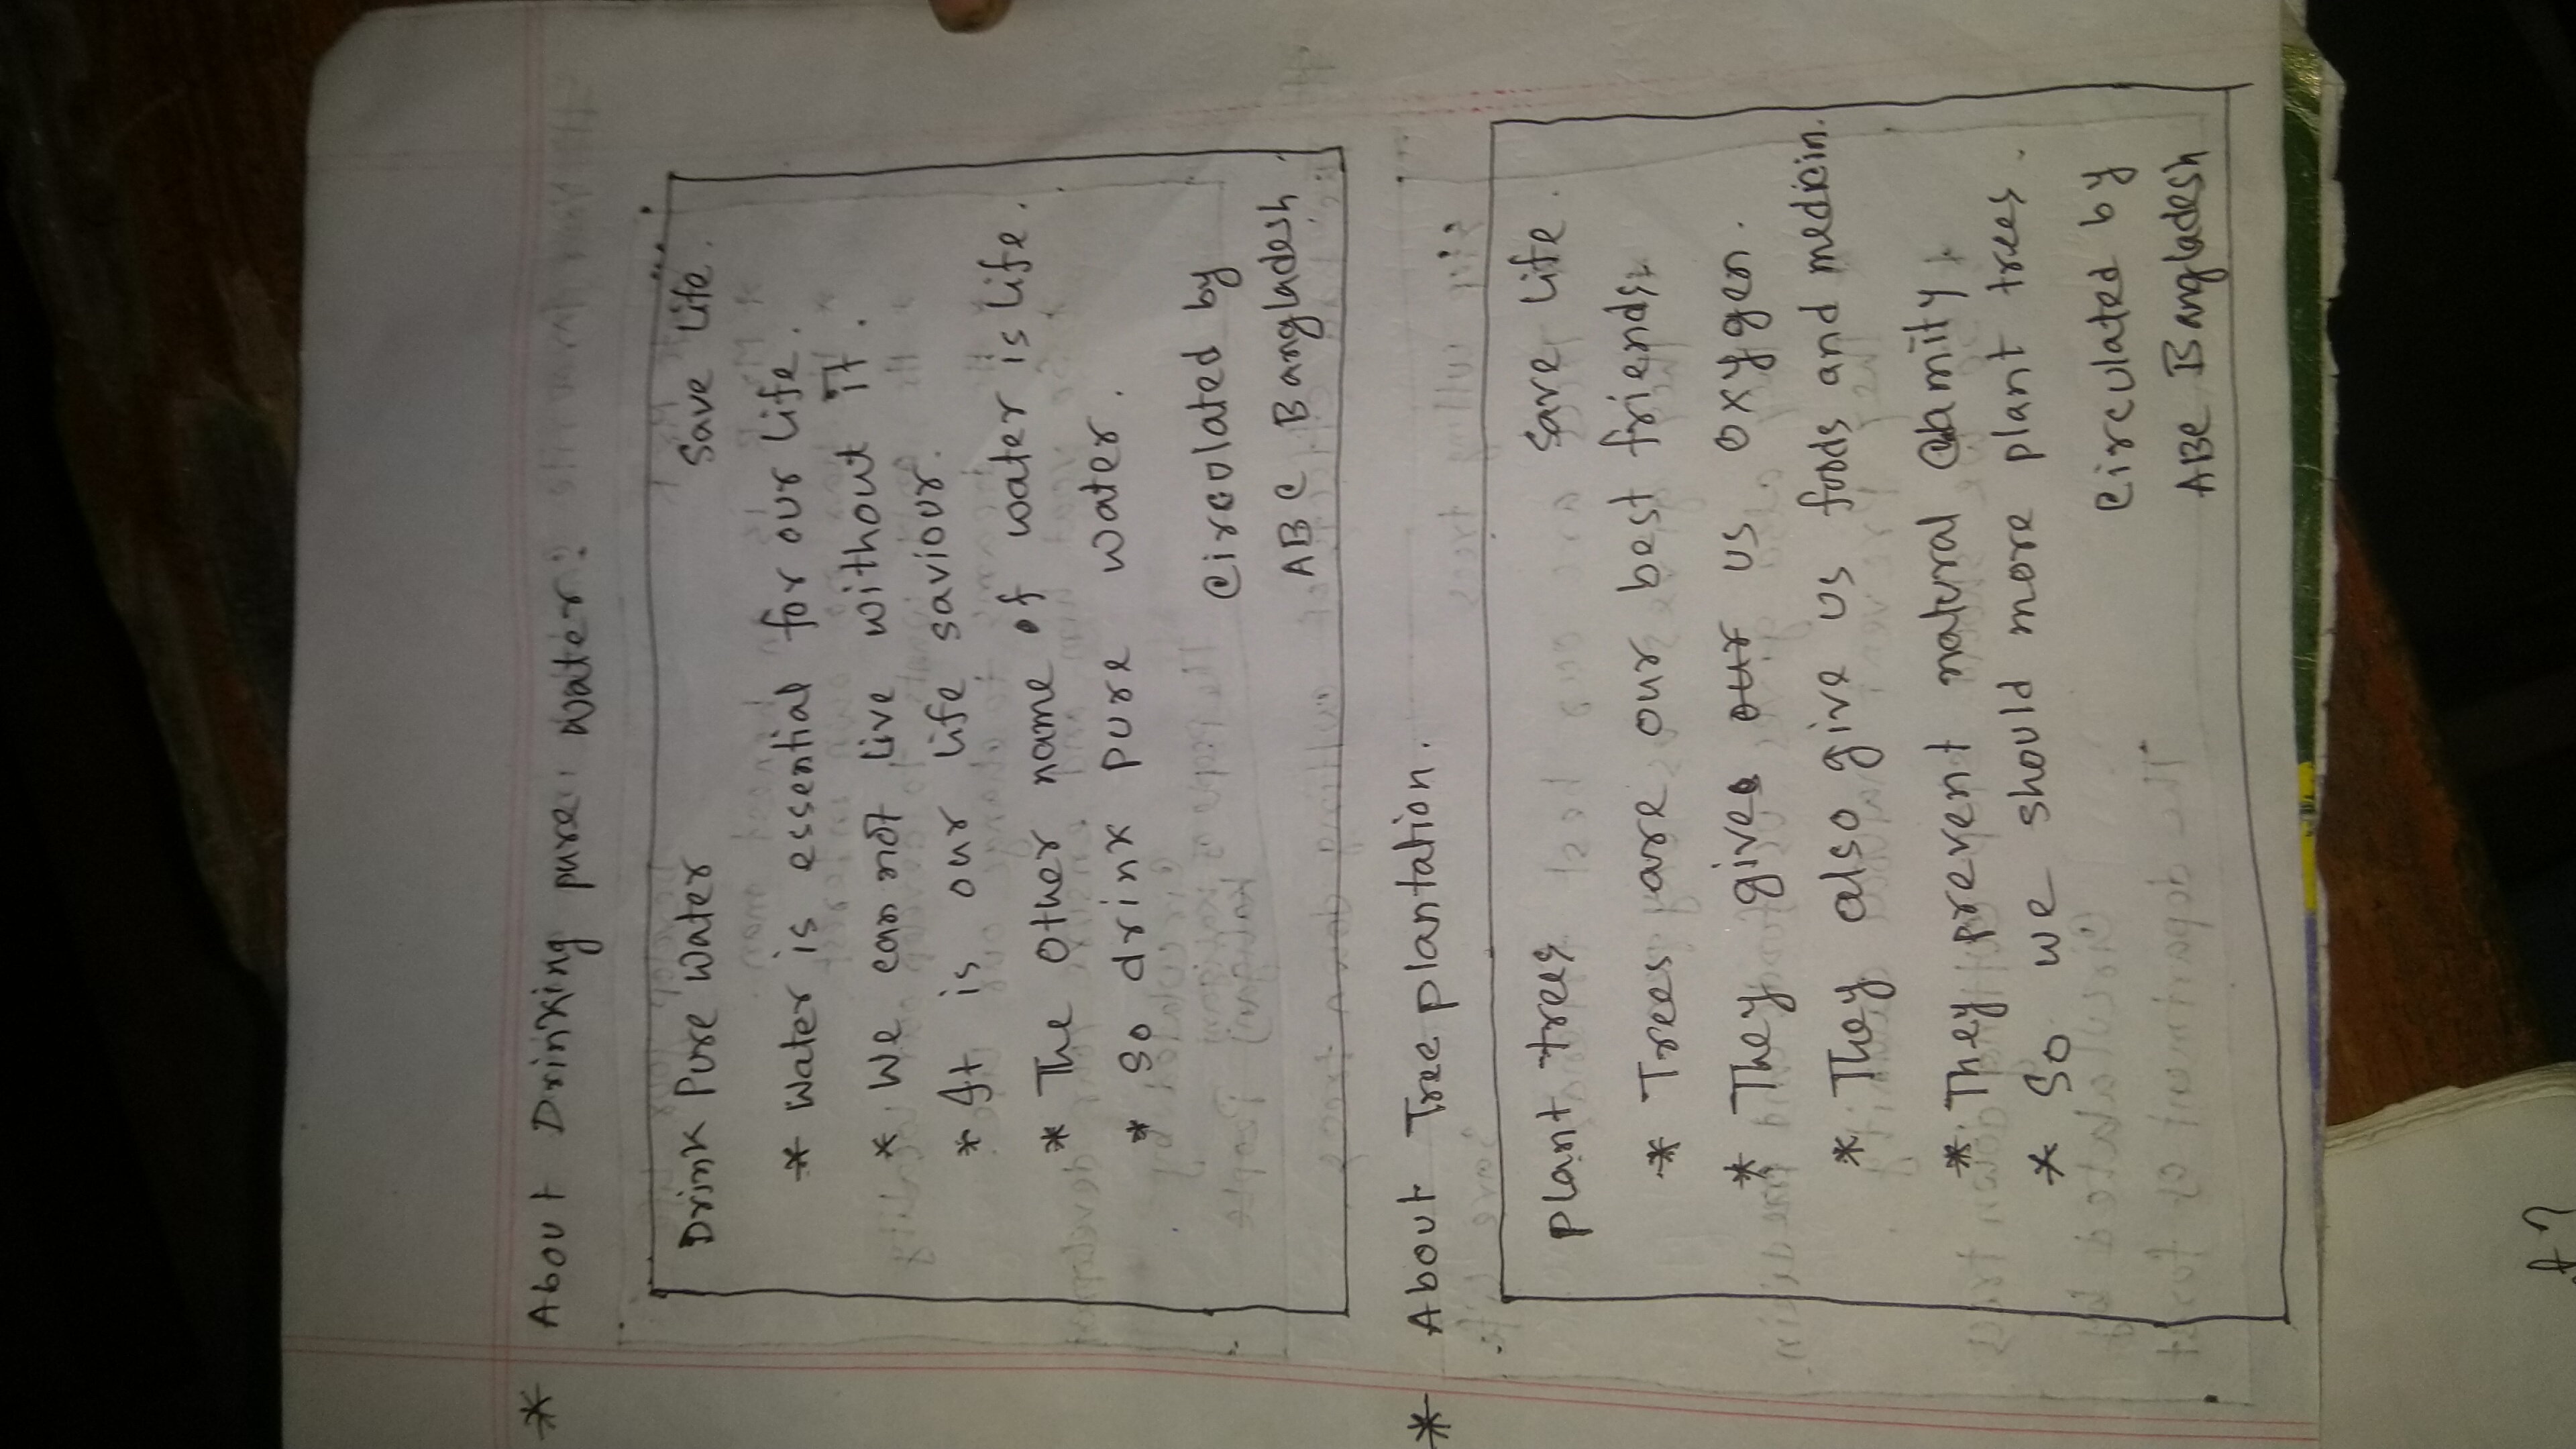 * About Drinking pure water:
Drink Pure Water Save Life.
* Water is essential for our life.
* We can not live without it.
* It is our life saviour.
* The other name of water is life.
* So drink pure water.
Circulated by
ABC Bangladesh
* About Tree plantation.
plant trees save life.
* Trees are our best friends.
* They give our us oxygen.
* They also give us foods and medicin.
* They prevent natural
* So we should more plant trees.
Circulated by
ABC Bangladesh